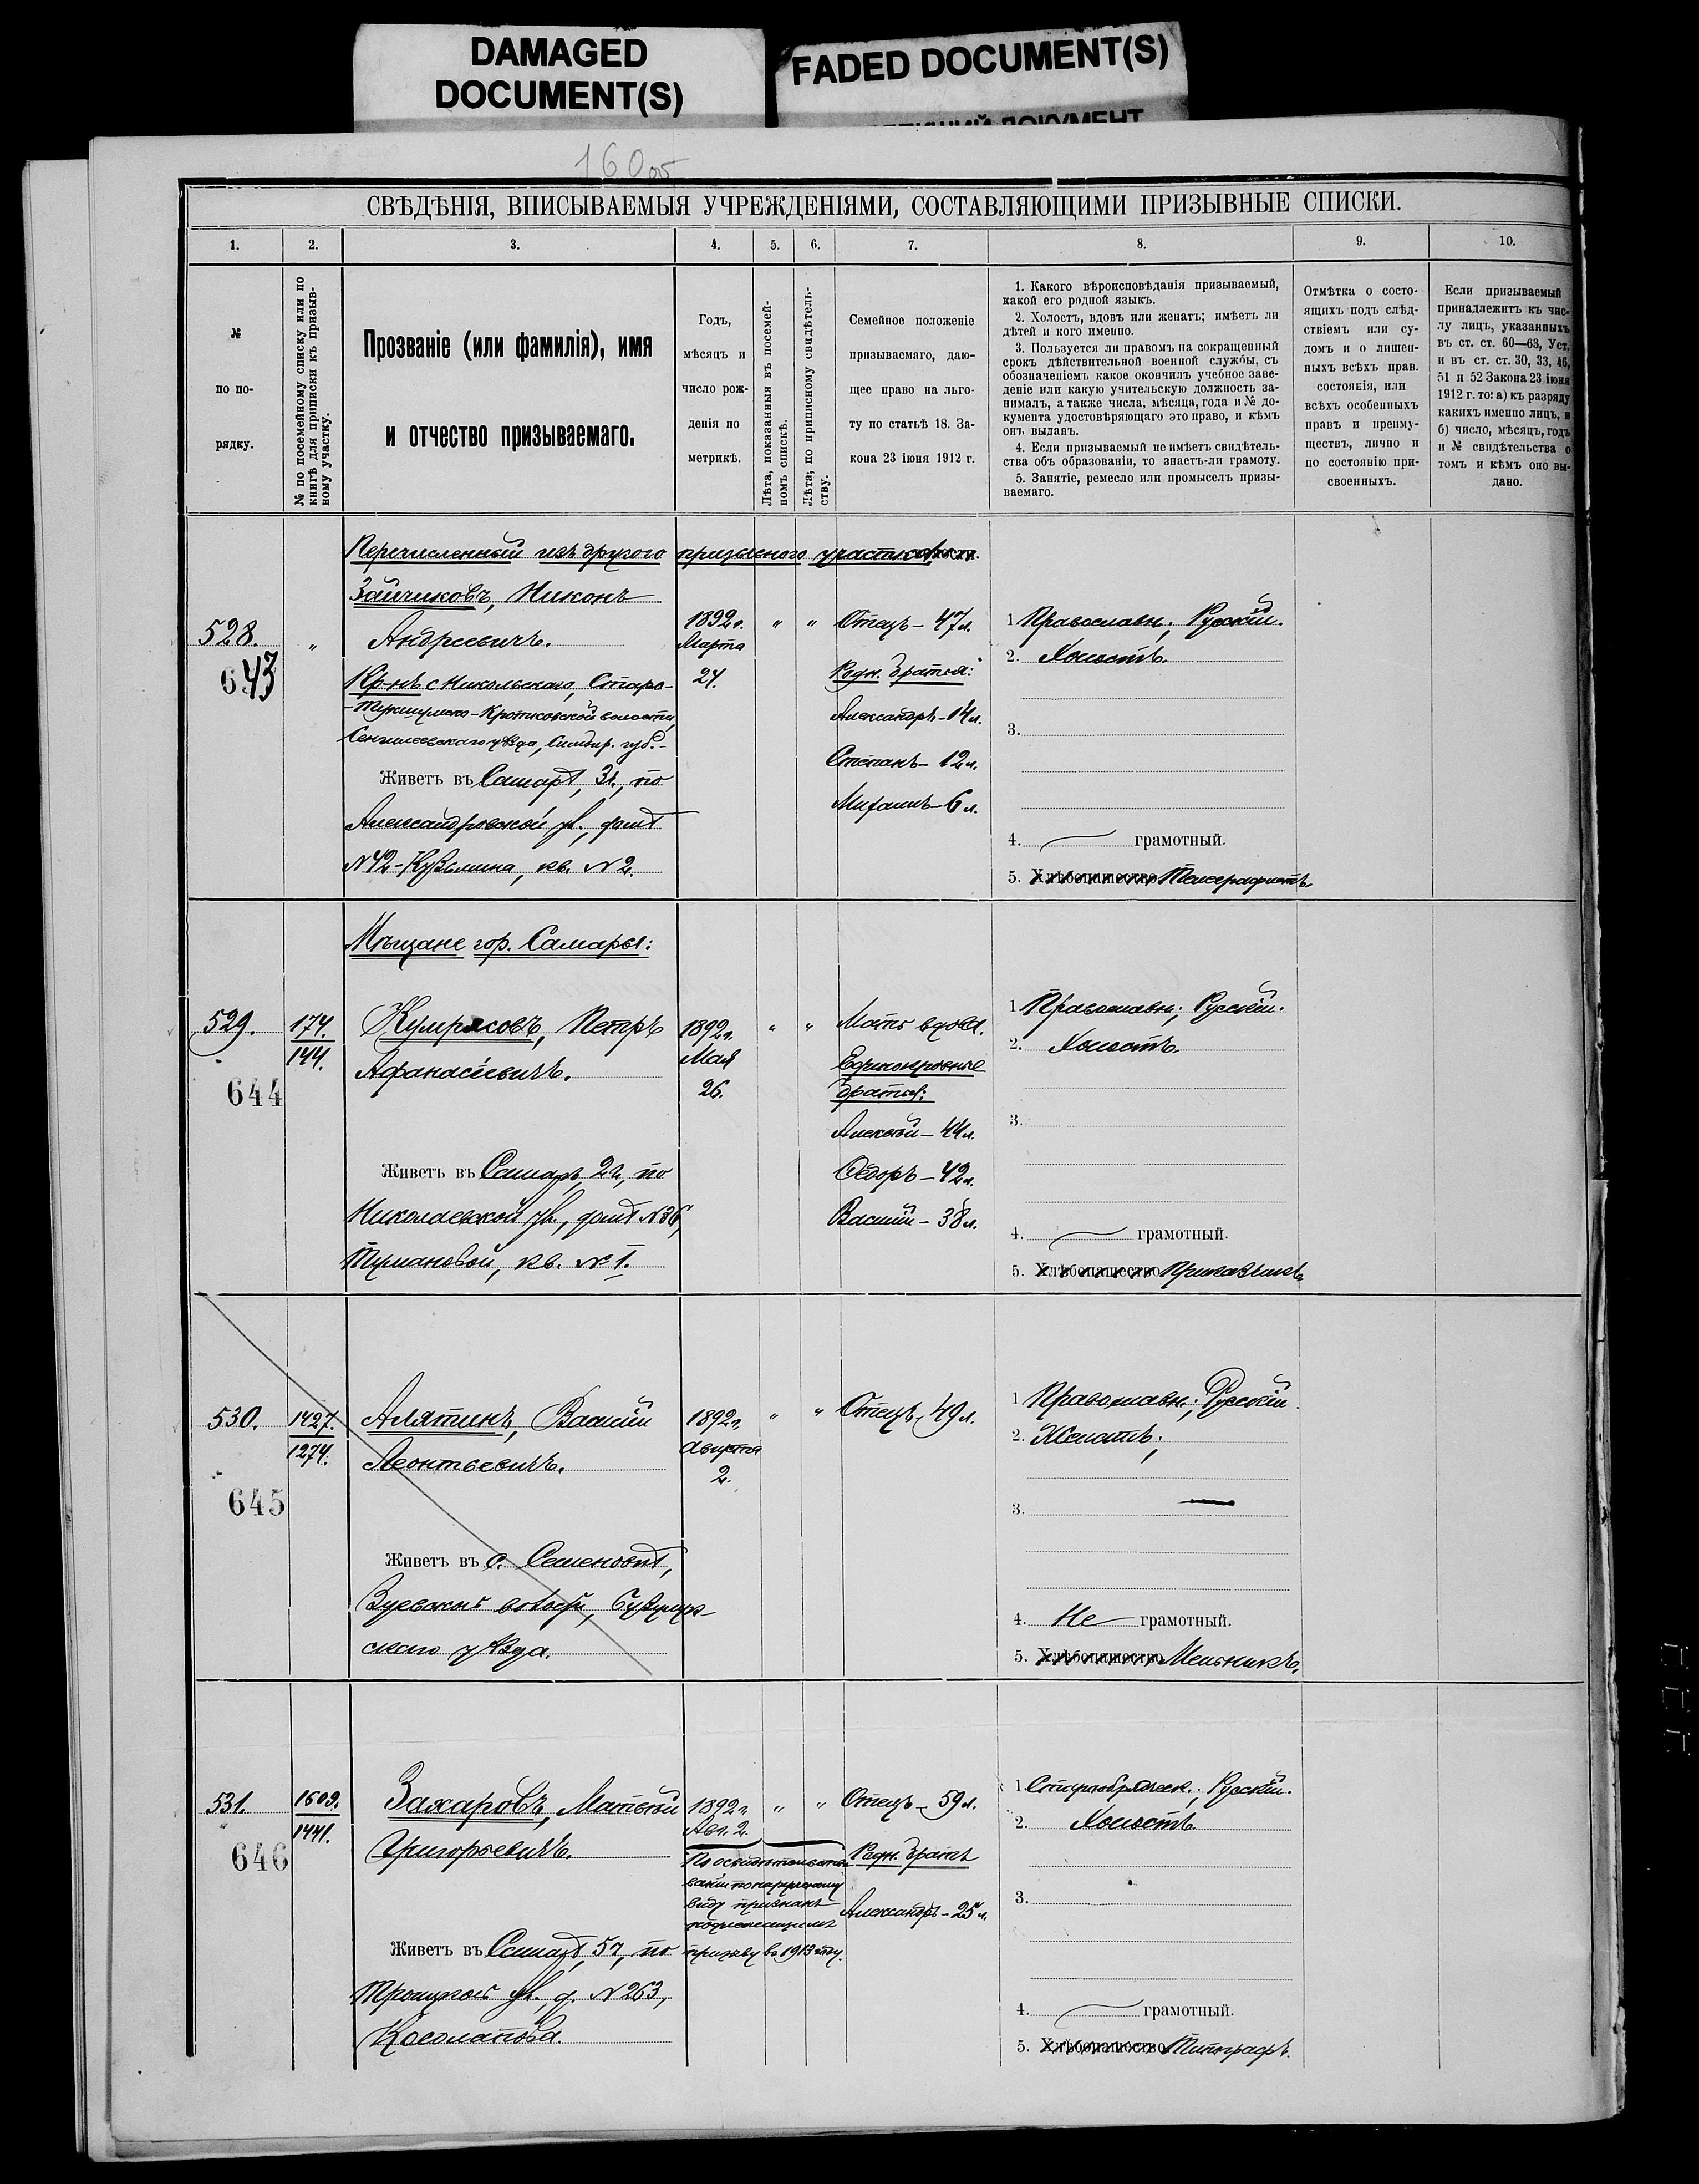 DAMAGED
DOCUMENT(S)
FADED DOCUMENT(S)
ДОКУМЕНТ
160 об
СВѢДѢНІЯ, ВПИСЫВАЕМЫЯ УЧРЕЖДЕНІЯМИ, СОСТАВЛЯЮЩИМИ ПРИЗЫВНЫЕ СПИСКИ.
1. 2. 3. 4. 5. 6. 7. 8. 9. 10.
№
по по-
рядку.
№ по посемейному списку или по
книгѣ для приписки къ призыв-
ному участку.
Прозваніе (или фамилія), имя
и отчество призываемаго.
Годъ,
мѣсяцъ и
число рож-
денія по
метрикѣ.
Лѣта, показанныя въ посемей-
номъ спискѣ.
Лѣта, по приписному свидѣтель-
ству.
Семейное положеніе
призываемаго, даю-
щее право на льго-
ту по статьѣ 18. За-
кона 23 іюня 1912 г.
1. Какого вѣроисповѣданія призываемый,
какой его родной языкъ.
2. Холостъ, вдовъ или женатъ; имѣетъ ли
дѣтей и кого именно.
3. Пользуется ли правомъ на сокращенный
срокъ дѣйствительной военной службы, съ
обозначеніемъ какое окончилъ учебное заве-
деніе или какую учительскую должность за-
нималъ, а также числа, мѣсяца, года и № до-
кумента удостовѣряющаго это право, и кѣмъ
онъ выданъ.
4. Если призываемый не имѣетъ свидѣтель-
ства объ образованіи, то знаетъ-ли грамоту.
5. Занятіе, ремесло или промыселъ призы-
ваемаго.
Отмѣтка о состо-
ящихъ подъ слѣд-
ствіемъ или су-
домъ и о лишен-
ныхъ всѣхъ прав.
состоянія, или
всѣхъ особенныхъ
правъ и преиму-
ществъ, лично и
по состоянію при-
своенныхъ.
Если призываемый
принадлежитъ къ чис-
лу лицъ, указанныхъ
въ ст. ст. 60—63, Уст.
и въ ст. ст. 30, 33, 46,
51 и 52 Закона 23 іюня
1912 г. то: а) къ разряду
какихъ именно лицъ, и
б) число, мѣсяцъ, годъ
и № свидѣтельства о
томъ и кѣмъ оно вы-
дано.
Перечисленный изъ другого призывного участка.
528.
643
"
Зайчиковъ, Никонъ
Андреевичъ.
Кр-нъ с Никольскаго, Старо-
волости,
Сенгилеевскаго уѣзда, Симбир. губ.-
Живетъ въ Самарѣ, 3ч., по
Александровской ул., домъ
№42-Кузьмина, кв. №2.
1892г.
Марта
24.
" "
Отецъ - 47л.
Родн. братья:
Александръ - 14л.
Степанъ - 12л.
Михаилъ - 6л.
1. Православн.; Русскій.
2. Холостъ.
3.
4. грамотный.
5. Хлѣбопашество Телеграфистъ.
Мѣщане гор. Самары:
529.
644
174.
144.
Кумрясовъ, Петръ
Афанасіевичъ.
Живетъ въ Самарѣ, 2ч, по
Николаевской ул., домъ №36,
Тумановой, кв. №1.
1892г.
Мая
26.
" "
Мать вдова.
Единокровные
братья:
Алексѣй - 44л.
Ѳедоръ - 42л.
Василій - 38л.
1. Православн.; Русскій.
2. Холостъ.
3.
4. грамотный.
5. Хлѣбопашество Приказчикъ
530.
645
1427.
1274.
Алятинъ, Василій
Леонтьевичъ.
Живетъ въ с. Семеновкѣ,
Зуевской волости, Бузулук-
скаго уѣзда.
1892г.
Августа
2.
" "
Отецъ - 49л.
1. Православн.; Русскій.
2. Женатъ;
3. —
4. Не грамотный.
5. Хлѣбопашество Мельникъ.
531.
646
1609.
1441.
Захаровъ, Матвѣй
Григорьевичъ.
Живетъ въ Самарѣ, 5ч, по
Троицкой ул., д. №263,
Косолапова.
1892г.
Авг. 2.
По освидѣтельство-
ваніи по наружному
виду признанъ
подлежащимъ
призыву въ 1913 году.
" "
Отецъ - 59л.
Родн. братъ
Александръ - 25л.
1. Старообрядческ.; Русскій.
2. Холостъ.
3.
4. грамотный.
5. Хлѣбопашество Типографъ.